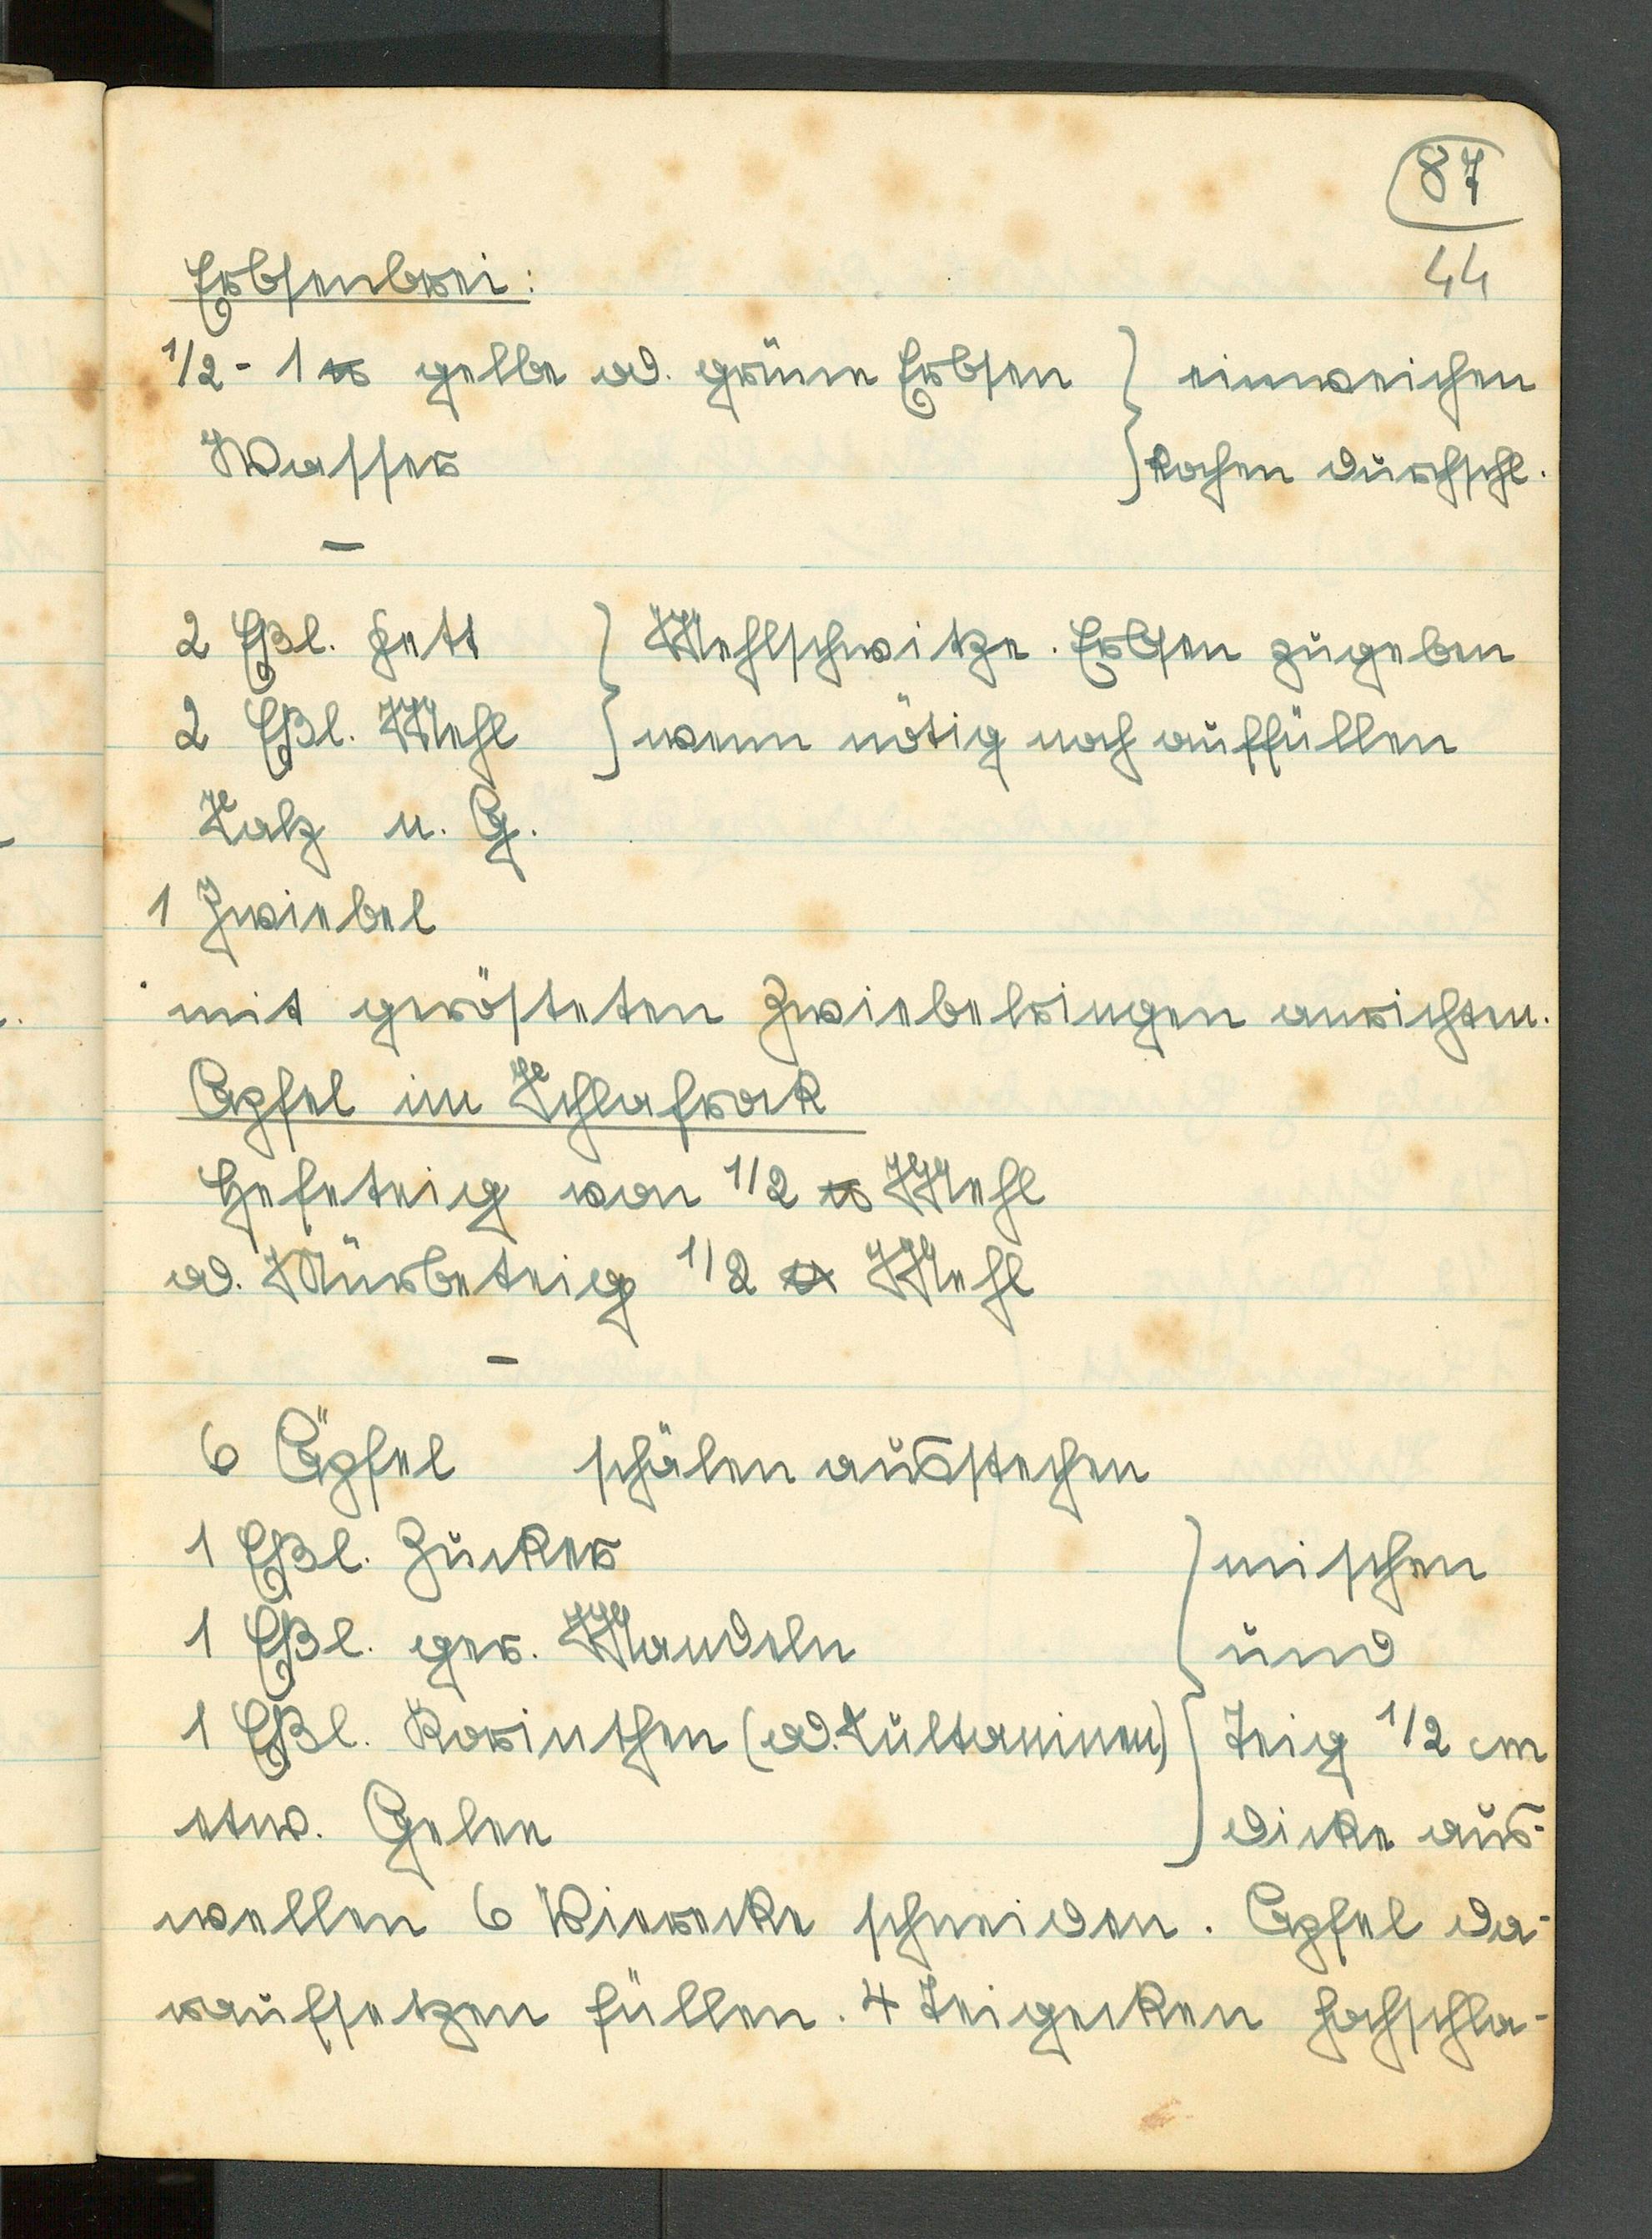 87
44
Erbsenbrei:
1/2 - 1 ℔ gelbe od. grüne Erbsen } einweichen
Wasser } kochen durchschl.
–
2 Eßl. Fett } Mehlschwitze. Erbsen zugeben
2 Eßl. Mehl } wenn nötig noch auffüllen
Salz u. G.
1 Zwiebel
mit gerösteten Zwiebelringen anrichten.
Apfel im Schlafrock
Hefeteig von 1/2 ℔ Mehl
od. Mürbeteig 1/2 ℔ Mehl
–
6 Äpfel schälen ausstechen
1 Eßl. Zucker } mischen
1 Eßl. ger. Mandeln } und
1 Eßl. Korinthen (od. Sultaninen) } Teig 1/2 cm
etw. Gelee } dicke aus-
wellen 6 Vierecke schneiden. Apfel da-
raufsetzen füllen. 4 Teigecken hochschla-